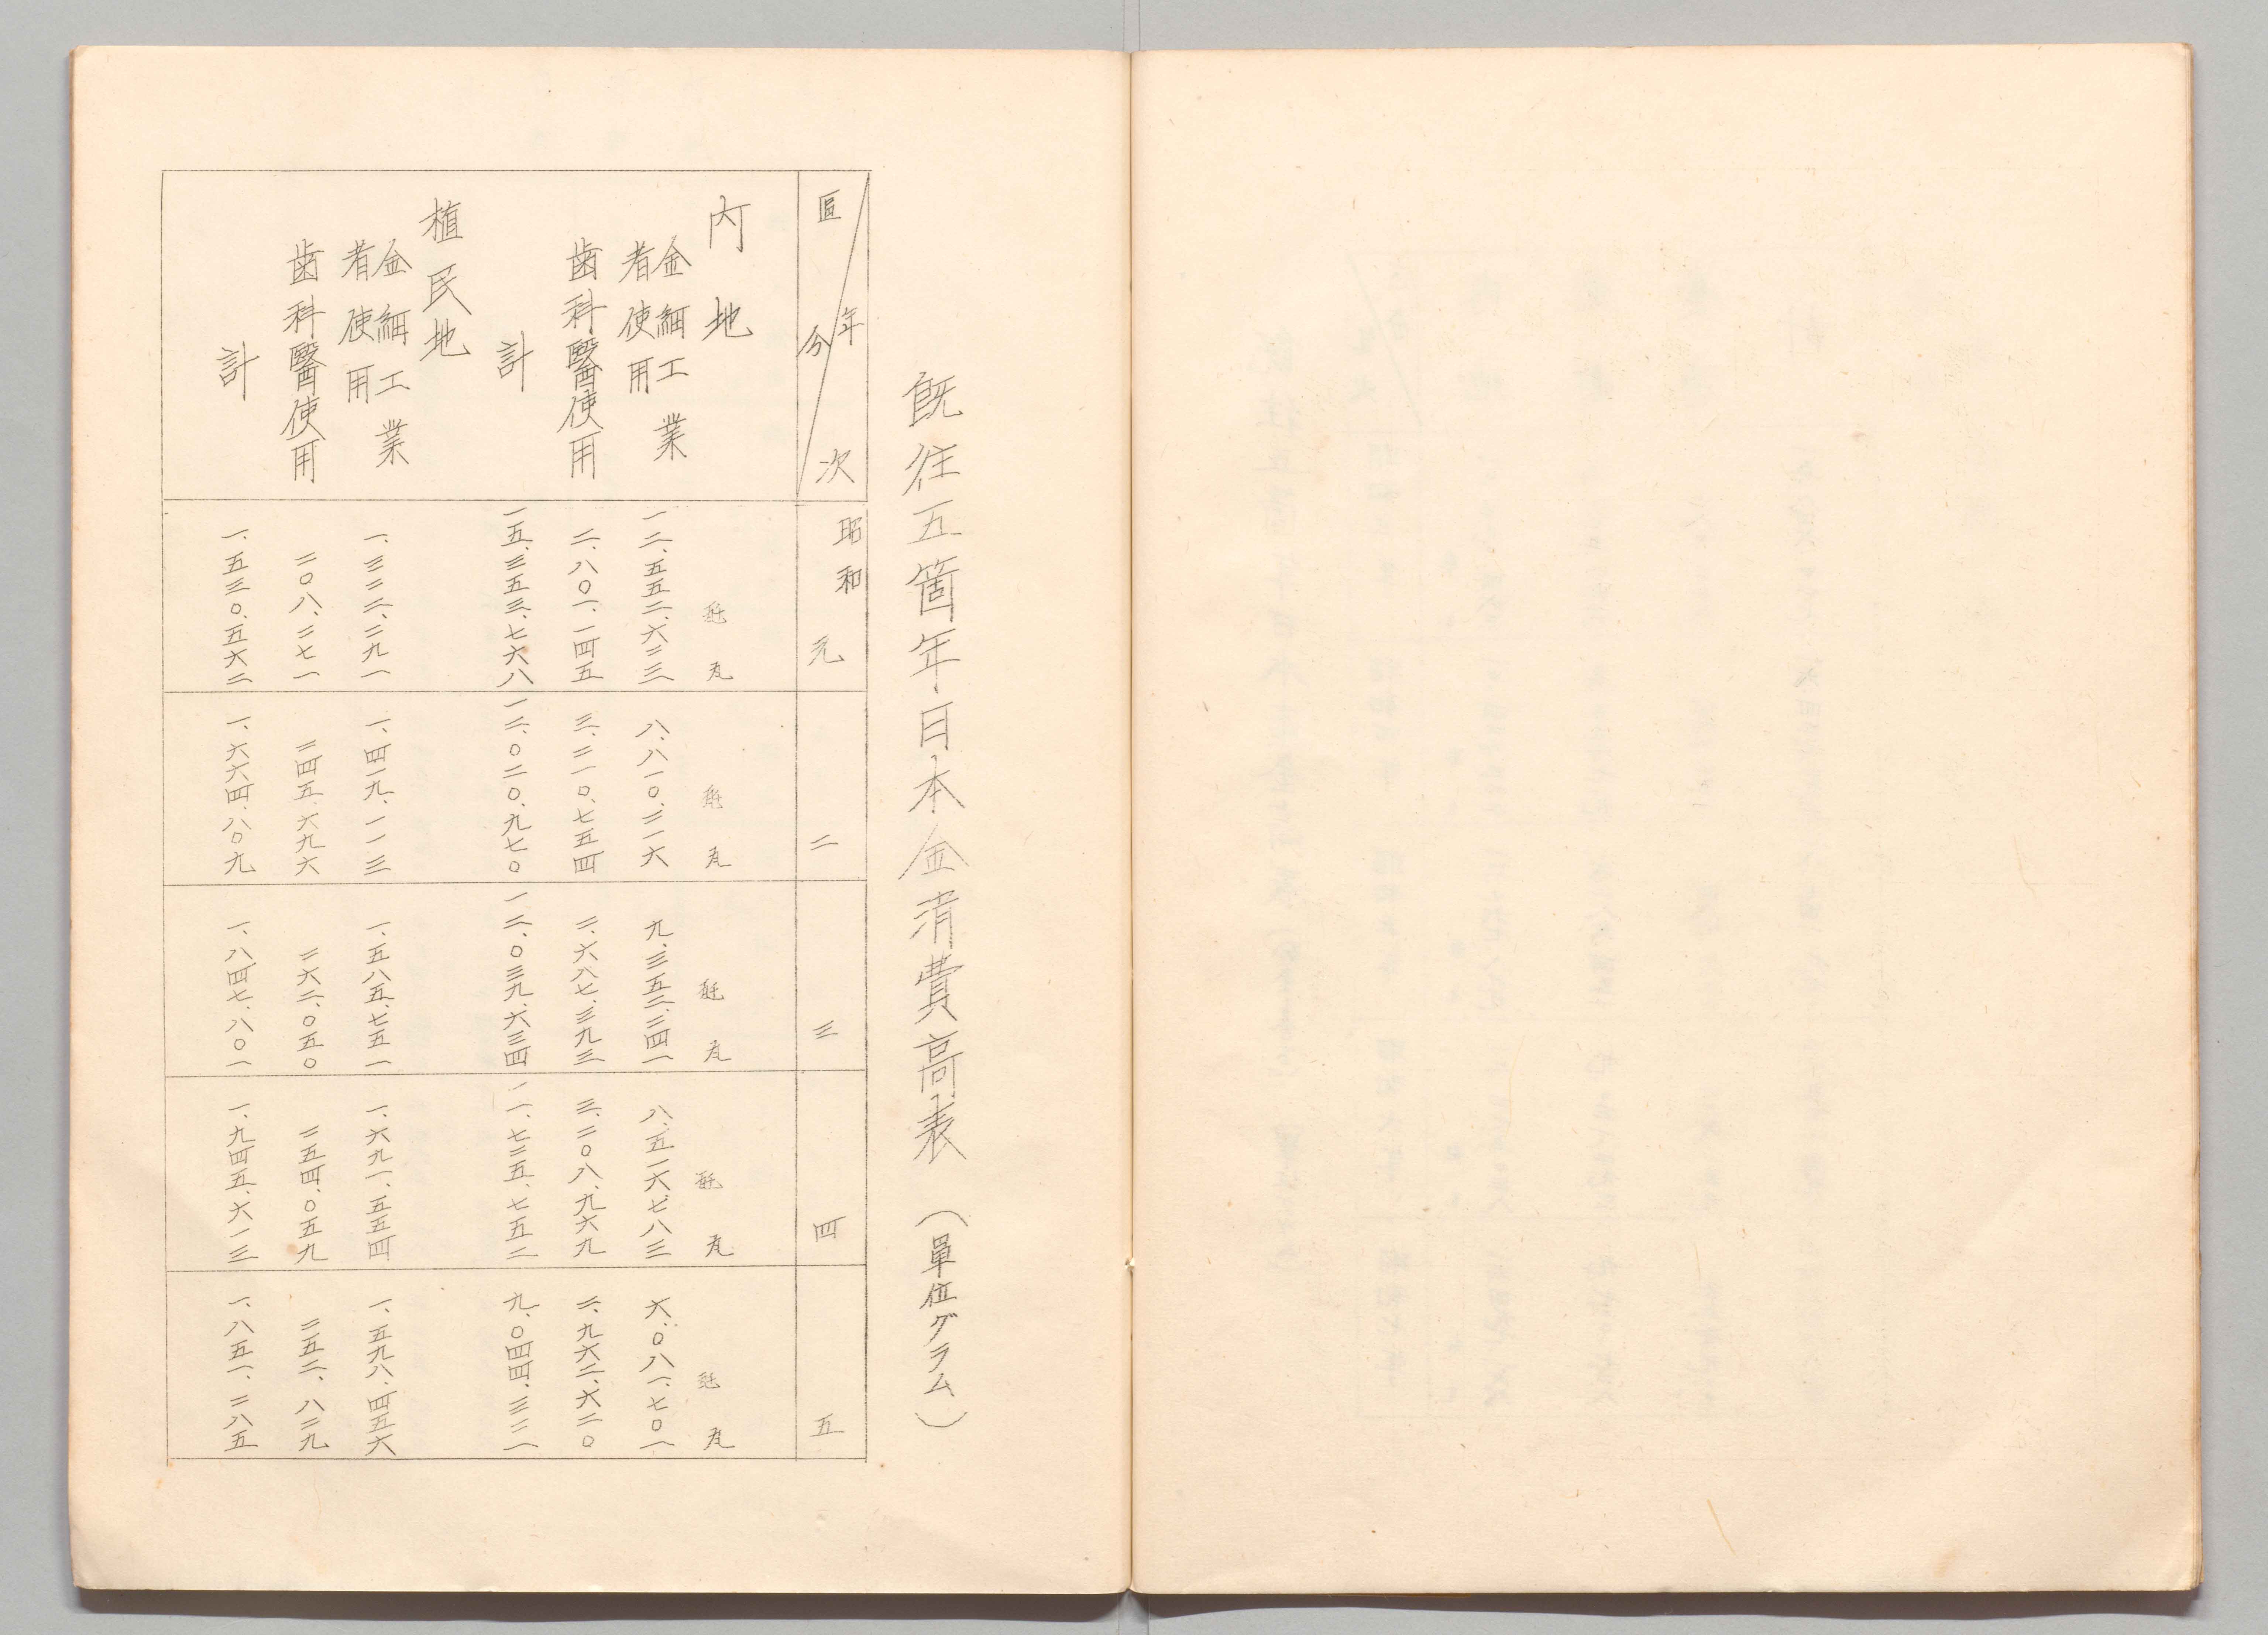 既往五箇年日本金消費高表（單位グラム）
區分 年次 昭和元 二 三 四 五
内地 瓩 瓦 瓩 瓦 瓩 瓦 瓩 瓦 瓩 瓦
金細工業者使用 一二、五五二、六二三 八、八一〇、二一六 九、三五二、二四一 八、五一六、七八三 六、〇八一、七〇一
歯科醫使用 二、八〇一、一四五 三、二一〇、七五四 二、六八七、三九三 三、二〇八、九六九 二、九六二、六二〇
計 一五、三五三、七六八 一二、〇二〇、九七〇 一二、〇三九、六三四 一一、七二五、七五二 九、〇四四、三二一
植民地
金細工業者使用 一、三二二、二九一 一、四一九、一一三 一、五八五、七五一 一、六九一、五五四 一、五九八、四五六
歯科醫使用 二〇八、二七一 二四五、六九六 二六二、〇五〇 二五四、〇五九 二五二、八二九
計 一、五三〇、五六二 一、六六四、八〇九 一、八四七、八〇一 一、九四五、六一三 一、八五一、二八五